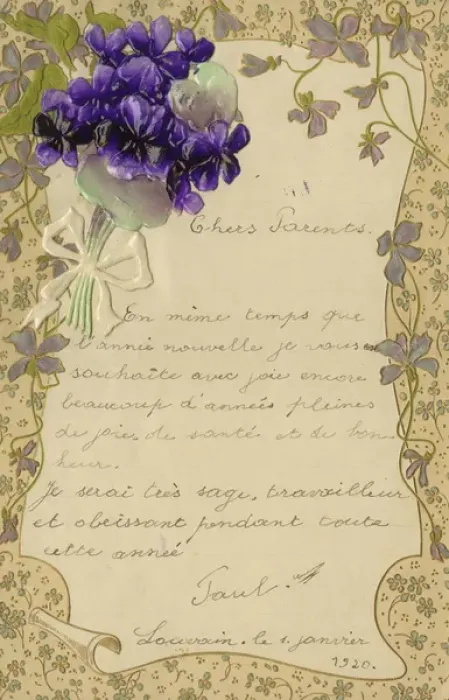 Chers Parents.
En même temps que
l'année nouvelle je vous
souhaite avec joie encore
beaucoup d'années pleines
de joie, de santé et de bon
heur.
Je serai très sage, travailleur
et obeissant pendant toute
cette année
Paul.
Louvain, le 1 janvier
1920.